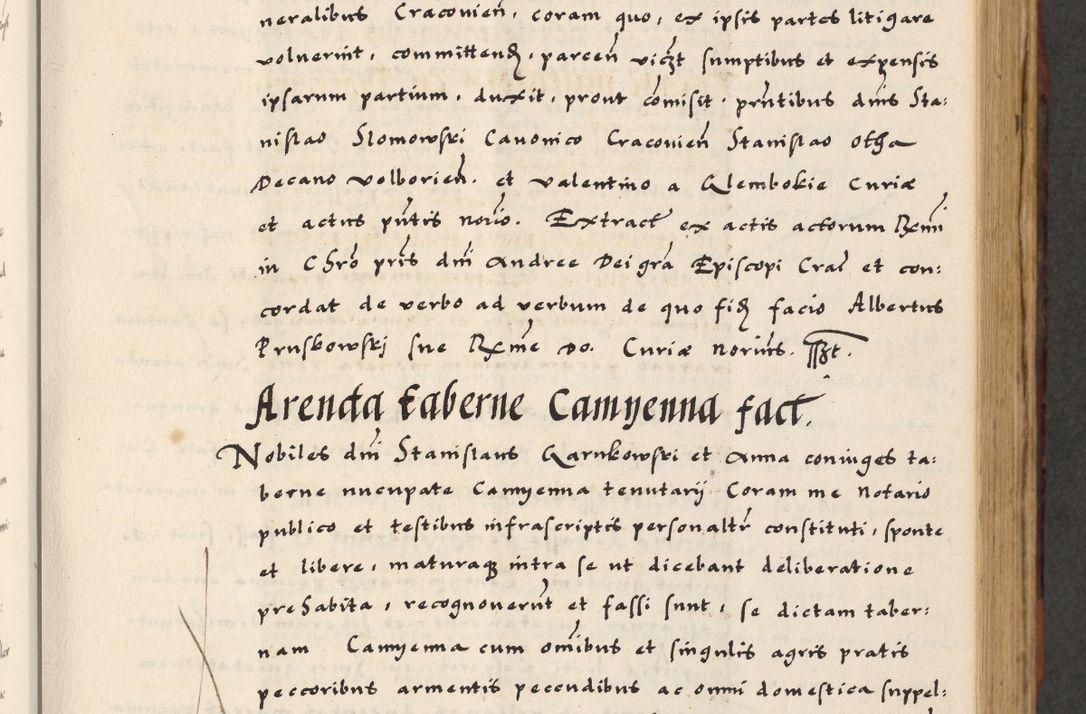 neralibus Cracovień, coram quo, ex ipsis partes litigare
voluerint, committend, parceń viczt sumptibus et expensis
ipsarum partium, duxit, prout comisit. pntibus dnis Sta:
nislao Slomowski Canonico Cracovień Stanislao otha
Decano volborień. et valentino a Glembokie Curiæ
et actus pntis norio. Extract ex actis actorum Rxmi
in Chro pris dni Andree Dei gra Episcopi Crac et con:
cordat de verbo ad verbum de quo fid facio Albertus
Pruskowski sue Rxme Do. Curiæ norius. sszt.
Arenda taberne Camyenna fact.
Nobiles dni Stanislaus Karnkowski et Anna coniuges ta:
berne nucupate Camyenna tenutarij Coram me Notario
publico et testibus infrascriptis personaltr constituti, sponte
et libere, maturaq intra se ut dicebant deliberatione
prehabita, recognoverunt et fassi sunt, se dictam taber:
nam Camyenna cum omibus et singulis agris pratis
peccoribus armentis peccudibus ac omni domestica suppel: